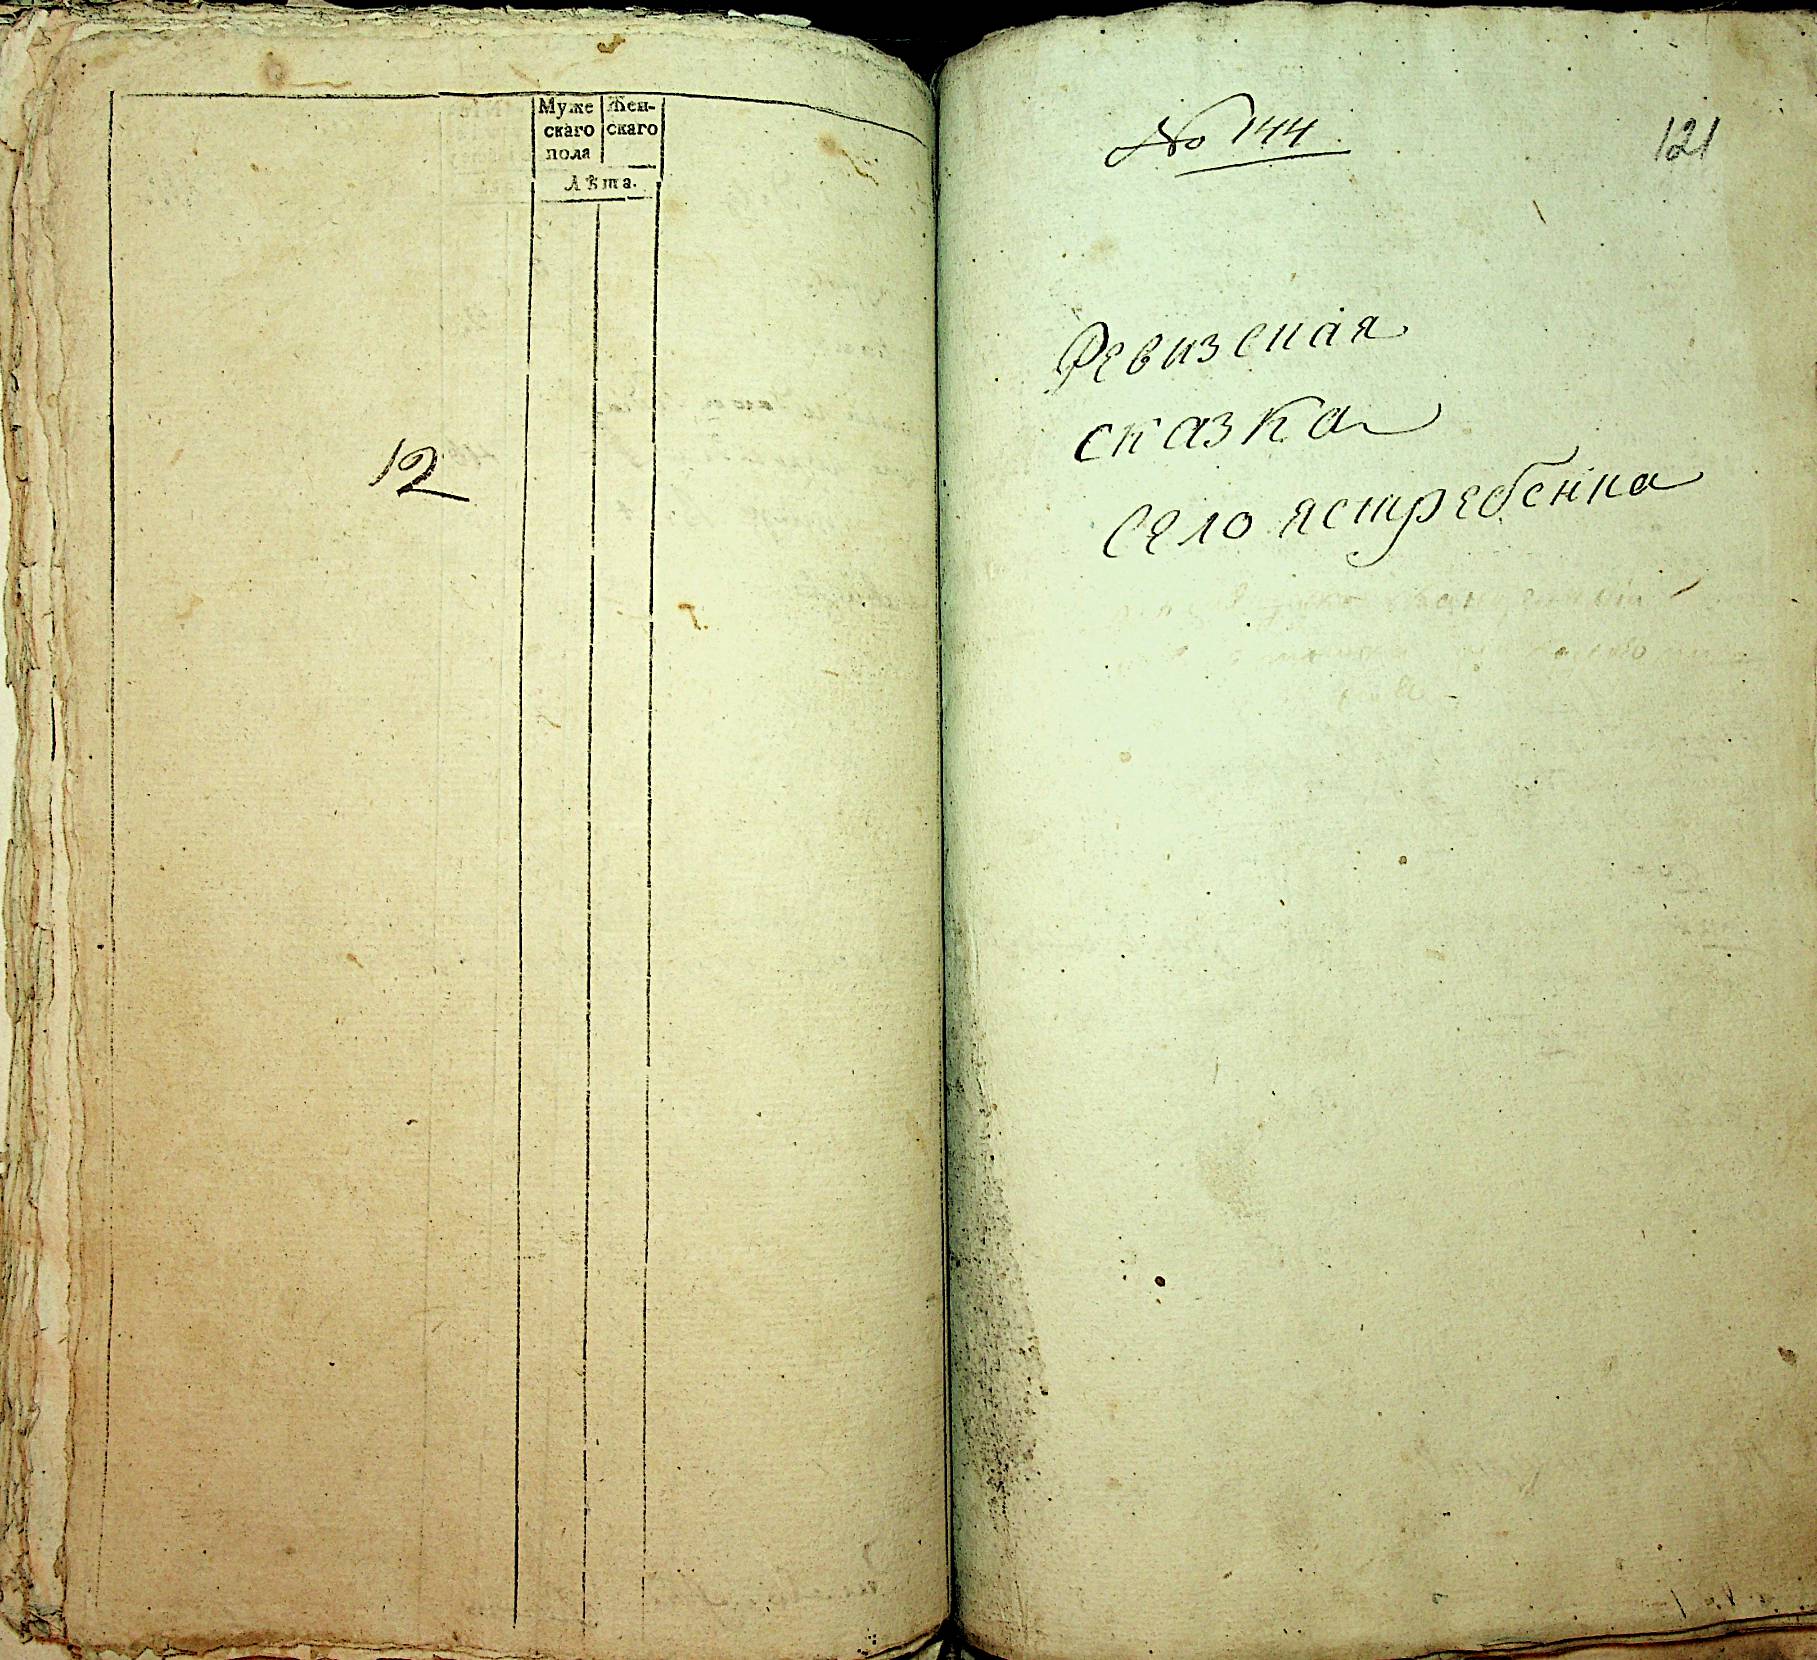 Муже
скаго
пола
Жен-
скаго
Лѣта.
12
No 144
121
Ревизская
сказка
село ястребенка